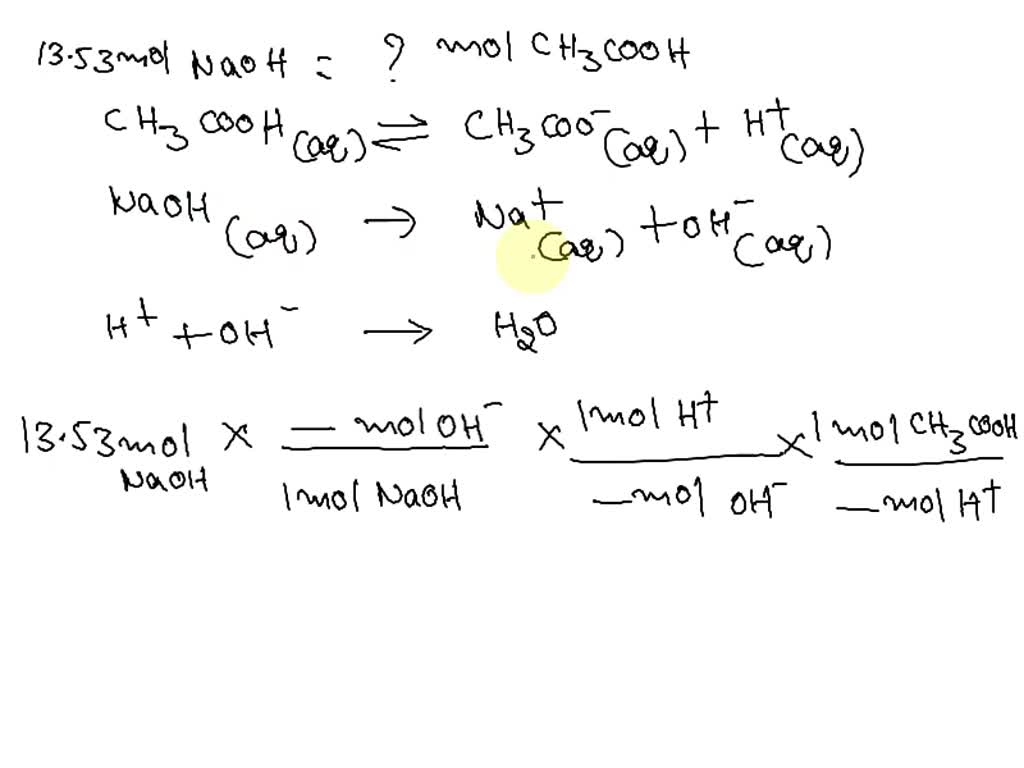 13.53mol NaOH = ? mol CH3COOH
CH3COOH(aq) ⇌ CH3COO⁻(aq) + H⁺(aq)
NaOH(aq) → Na⁺(aq) + OH⁻(aq)
H⁺ + OH⁻ → H2O
13.53mol NaOH × — mol OH⁻ / 1mol NaOH × 1mol H⁺ / — mol OH⁻ × 1mol CH3COOH / — mol H⁺